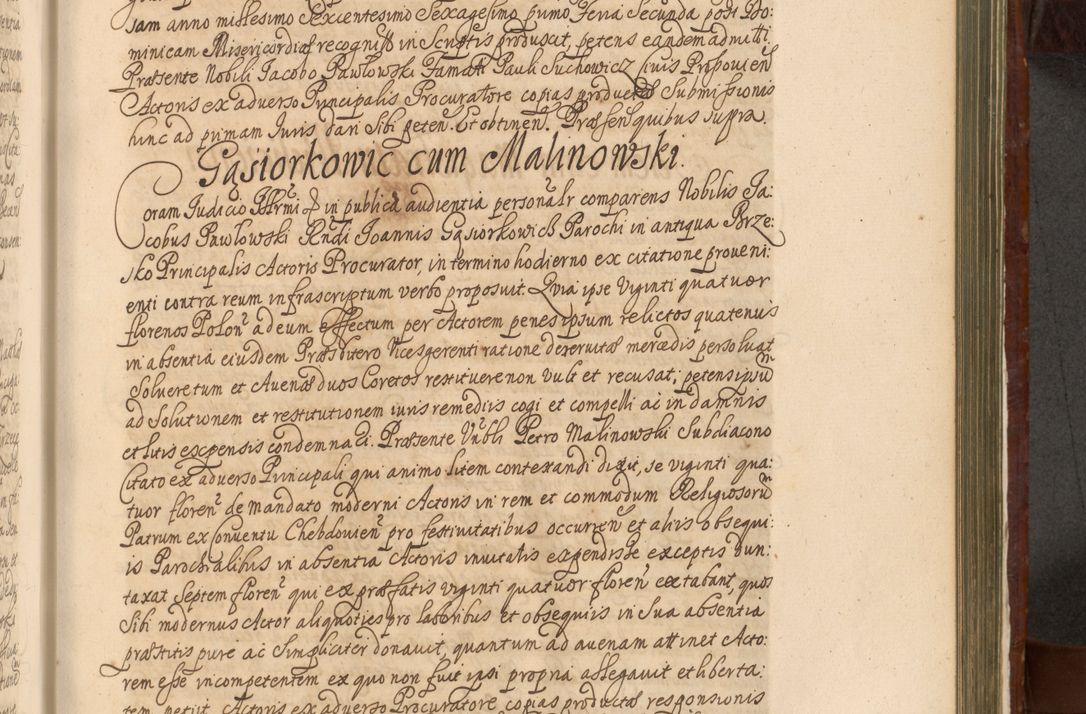 sam anno millesimo Sexcentesimo Sexagesimo primo Feria Secunda post Do:
minicam Misericordiæ recognit in Scriptis produxit, petens eandem admitti.
Præsente Nobili Jacobo Pawłowski Famati Pauli Suchowicz Civis
Actoris ex adverso Principalis Procuratore copias productæ Submissionis
hinc ad primam Juris dari Sibi peten. Et obtinen. Præsen quibus supra.
Gąsiorkowic cum Malinowski.
Coram Judicio in publica audientia personalr comparens Nobilis Ja:
cobus Pawłowski Rndi Joannis Gąsiorkowich Parochi in antiqua Brze:
sko Principalis Actoris Procurator, in termino hodierno ex citatione proueni:
enti contra reum infrascriptum verbo proposuit. Quia ipse Viginti quatuor
florenos Polon ad eum effectum per Actorem penes ipsum relictos quatenus
in absentia eiusdem Præsbitero Vicesgerenti ratione deservitæ mercedis persoluat
Soluere tum et Auenæ duos Coretos restituere non vult et recusat; petens ipsum
ad Solutionem et restitutionem iuris remediis cogi et compelli ac in damnis
et litis expensis condemnaci. Præsente Vnbli Petro Malinowski Subdiacono
Citato ex adverso Principali qui animo litem contexandi dixit, se viginti qua:
tuor floren de mandato moderni Actoris in rem et commodum Religiosorum
Patrum ex Conuentu Chebdouien pro festiuitatibus occurren et aliis obsequi:
is Parochialibus in absentia Actoris inuitatis expendisse exceptis dun:
taxat Septem floren qui ex præfatis viginti quatuor floren extabant, quos
Sibi modernus Actor aliquoties pro laboribus et obsequiis in Sua absentia
præstitis pure ac Simpliciter donauit, quantum ad auenam attinet Acto:
rem esse incompetentem ex quo non fuit ipsi propria allegauit et liberta:
tem petiit. Actoris ex adverso Procuratore copias productæ responsionis